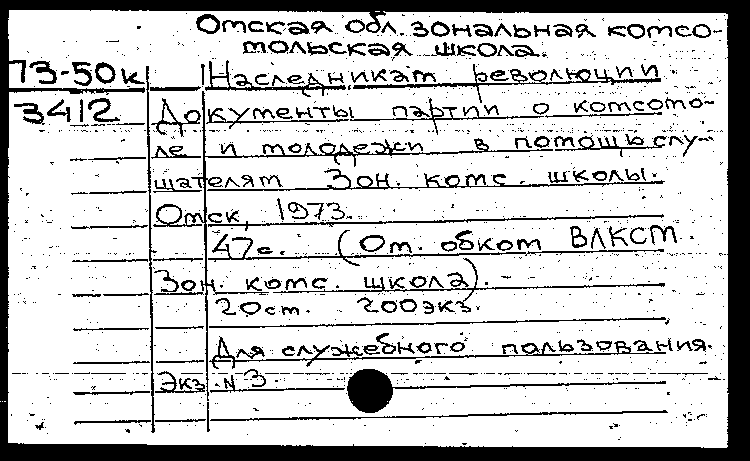 Омская обл. зональная комсо-
мольская школа.
73-50к Наследникам революции.
3412 Документы партии о комсомо-
ле и молодежи в помощь слу-
шателям Зон. комс. школы.
Омск, 1973.
47с. (Ом. обком ВЛКСМ.
Зон. комс. школа).
20ст. 200экз.
Для служебного пользования.
Экз. N 3.